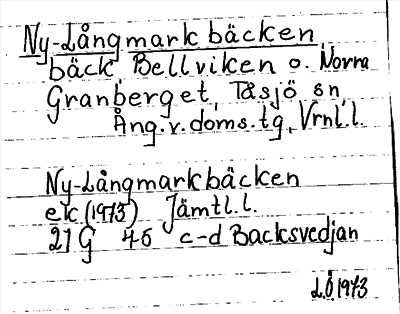 Ny-Långmarkbäcken,
bäck, Bellviken o. Norra
Granberget, Tåsjö sn,
Ång.v.doms.tg, Vrnl.l.
Ny-Långmarkbäcken
ek (1973) Jämtl.l.
21 G 4-5 c-d Backsvedjan
L.Ö 1973